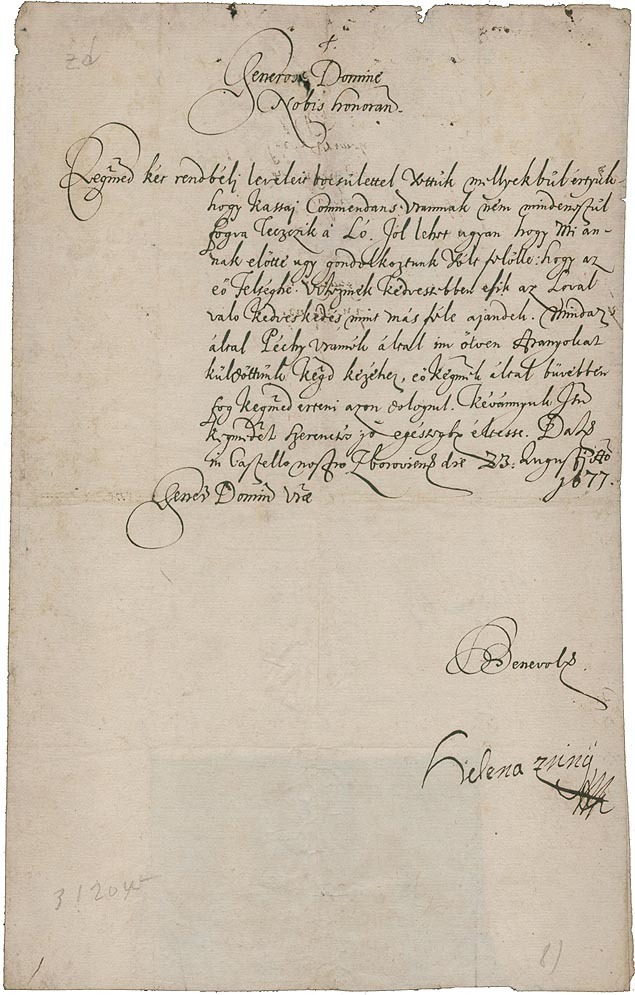 zd
Generose Domine
Nobis honoran.
Kegmed két rendbéli leveleit bötsülettel vöttük mellyekbül értyük
hogy Kassai Commendans Uramnak nem mindenestül
fogva teczczik a Ló. Jól lehet ugyan hogy Mi an-
nak előtte ugy gondolkoztunk vólt felőlle: hogy az
eő Felséghe Vitezinek kedvessebben esik az Lóval
valo kedveskedés mint más féle ajandek. Mindaz
által Péchy Uramék által im ötven Aranyokat
küldöttünk Kegd kezéhez, eő Kegmek által bűvebben
fog Kegmed érteni azon dologrul. Kévánnyuk Istn
Kegmedet szerencsés jó egésségbē éltesse. Datz
in Castello nostro Zboroviens die 23. Augusti Ao
1677.
Gener Domin Vrae
Benevolz
Helena Zriny
31204
8)